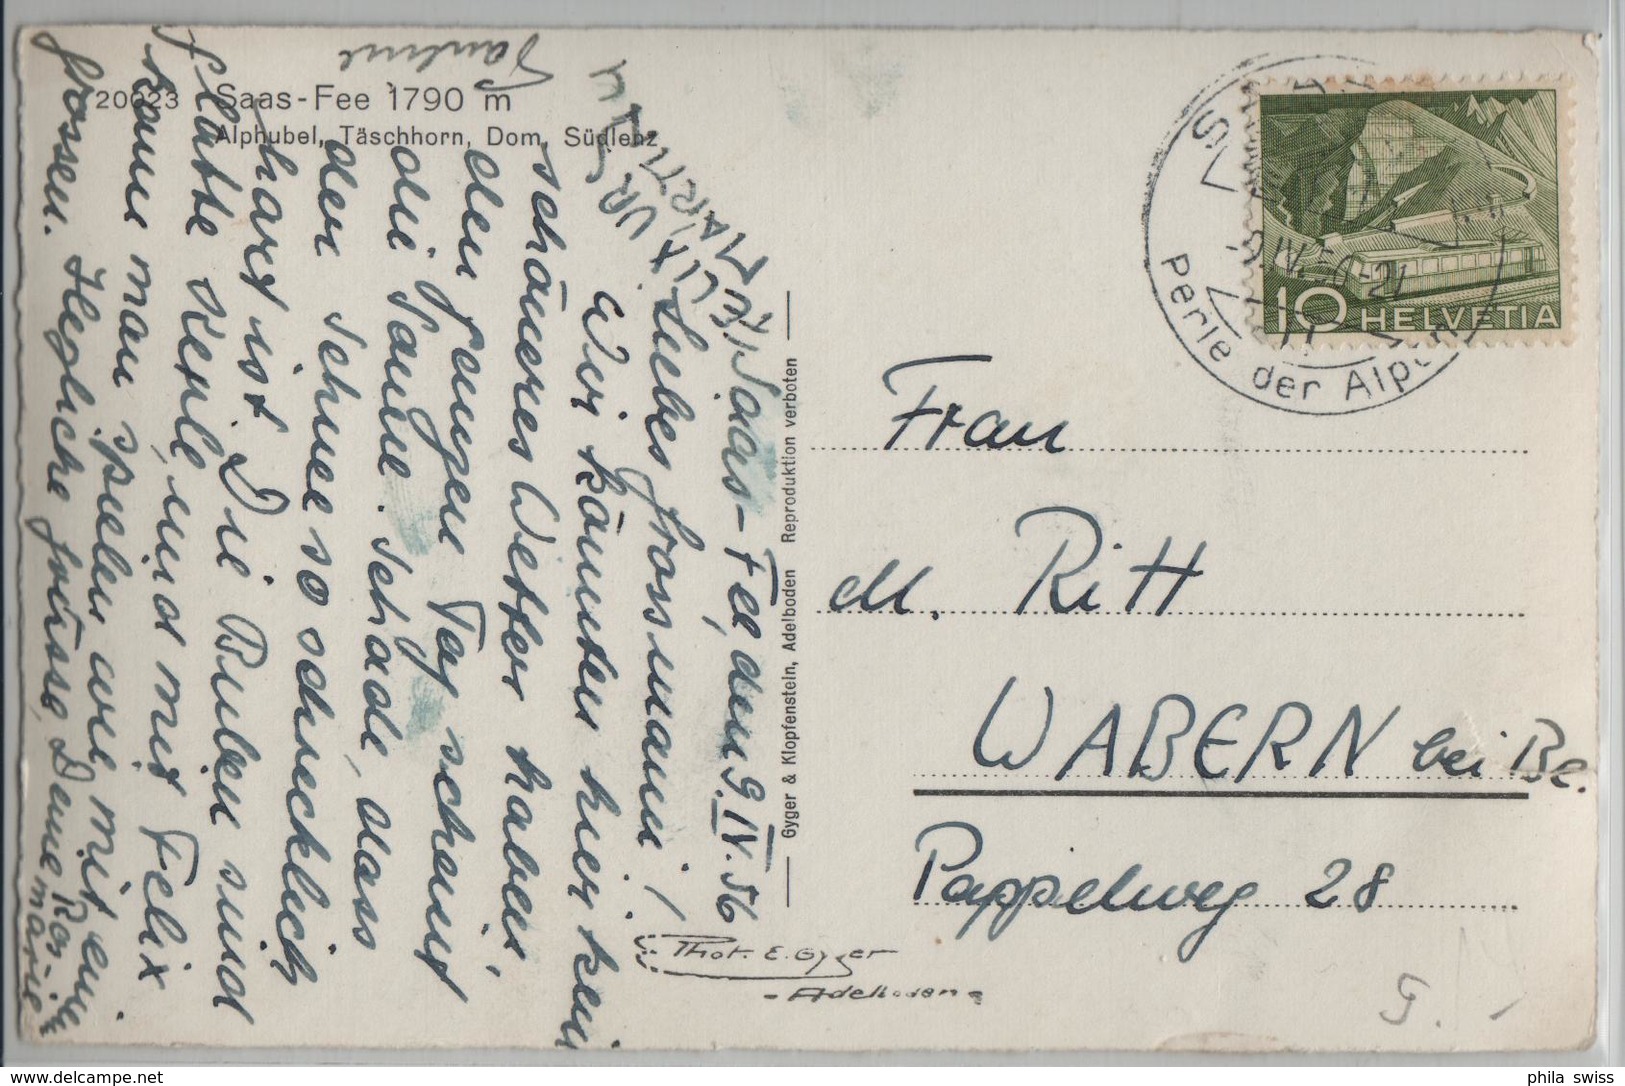 20023 Saas-Fee 1790 m
Alphubel, Täschhorn, Dom, Südlenz
Saas-Fee, den 9. IV. 56
Liebes Grossmami!
Wir könnten hier kein
schöneres Wetter haben,
den ganzen Tag scheint
die Sonne. Schade, dass
der Schnee so schrecklich
hart ist. Die Buben sind
flotte Kerle, und mit Felix
kann man spielen wie mit einem
Grossen. Herzliche Grüsse, Deine Ros-
marie
MARTIN
URS
FELIX
Gyger & Klopfenstein, Adelboden Reproduktion verboten
Phot. E. Gyger
- Adelboden -
HELVETIA
10
Perle der Alpen
Frau
M. Ritt
WABERN bei Be.
Pappelweg 28
G.
phila swiss
www.delcampe.net